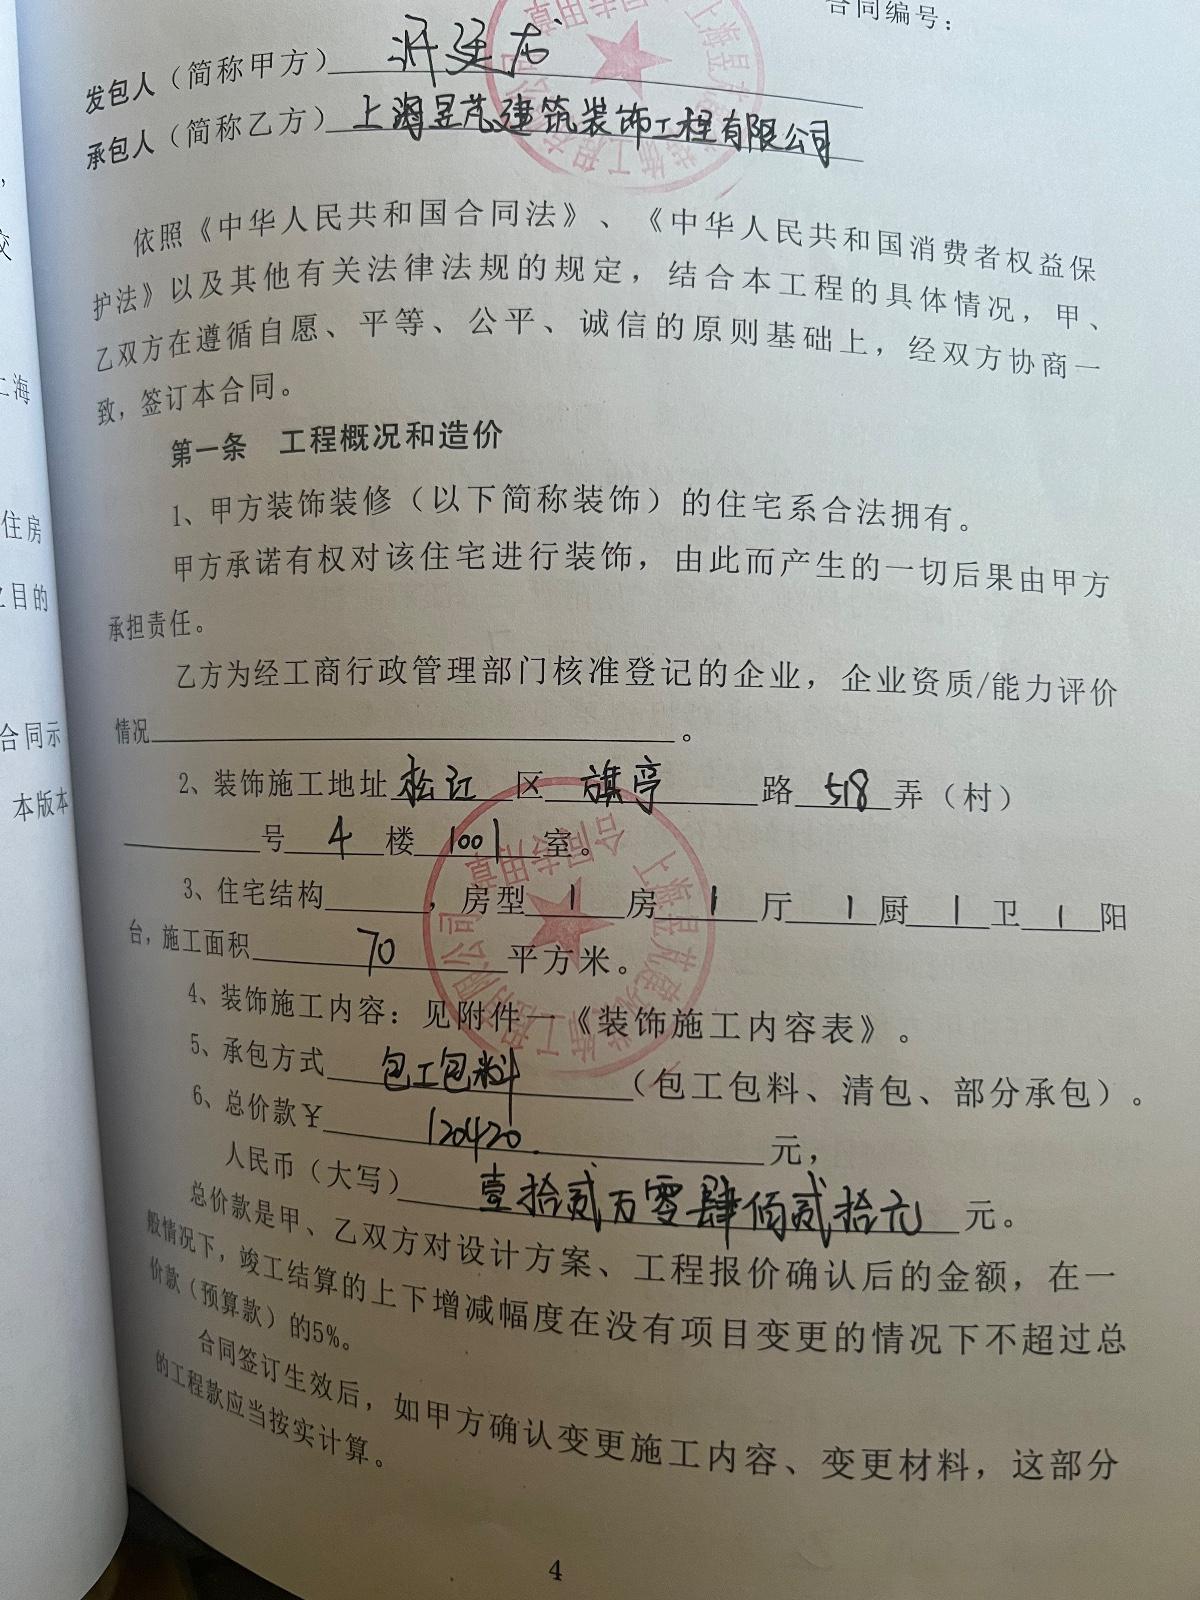 合同编号：
发包人（简称甲方）
承包人（简称乙方）上海昱芃建筑装饰工程有限公司
依照《中华人民共和国合同法》、《中华人民共和国消费者权益保
护法》以及其他有关法律法规的规定，结合本工程的具体情况，甲、
乙双方在遵循自愿、平等、公平、诚信的原则基础上，经双方协商一
致，签订本合同。
第一条 工程概况和造价
1、甲方装饰装修（以下简称装饰）的住宅系合法拥有。
甲方承诺有权对该住宅进行装饰，由此而产生的一切后果由甲方
承担责任。
乙方为经工商行政管理部门核准登记的企业，企业资质/能力评价
情况。
2、装饰施工地址松江区旗亭路518弄（村）
号4楼1001室。
3、住宅结构，房型1房1厅1厨1卫1阳
台，施工面积70平方米。
4、装饰施工内容：见附件一《装饰施工内容表》。
5、承包方式包工包料（包工包料、清包、部分承包）。
6、总价款￥120420.元，
人民币（大写）壹拾贰万零肆佰贰拾元元。
总价款是甲、乙双方对设计方案、工程报价确认后的金额，在一
般情况下，竣工结算的上下增减幅度在没有项目变更的情况下不超过总
价款（预算款）的5%。
合同签订生效后，如甲方确认变更施工内容、变更材料，这部分
的工程款应当按实计算。
4
交
上海
住房
之目的
合同示
本版本
合同专用章